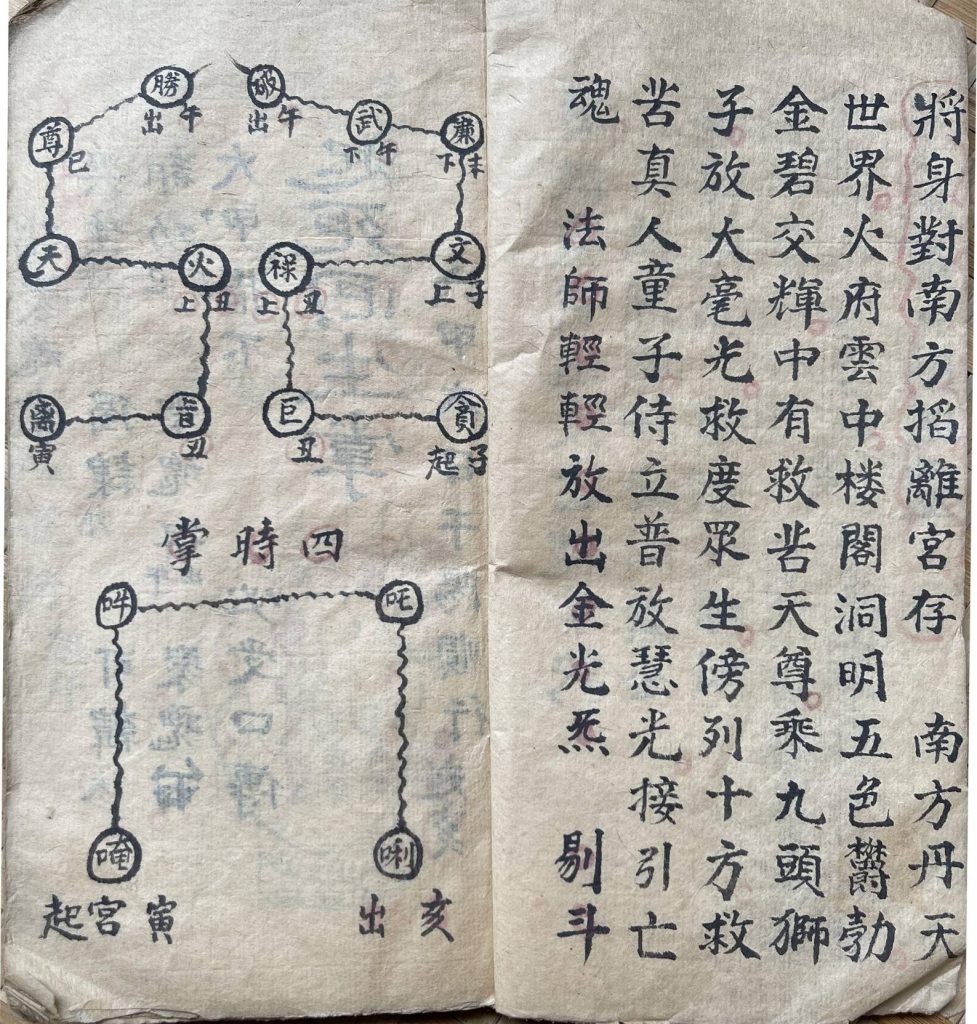 將身對南方搯離宮存 南方丹天
世界火府雲中楼閣洞明五色欝勃
金碧交輝中有救苦天尊乘九頭獅
子放大毫光救度眾生傍列十方救
苦真人童子侍立普放慧光接引亡
魂 法師輕輕放出金光炁 剔斗
破
午出
勝
午出
武
午下
廉
未下
尊
巳
文
子上
禄
丑上
火
丑上
貪
子起
巨
丑
丑
离
寅
四時掌
吒
吽
唎
亥出
唵
寅宮起